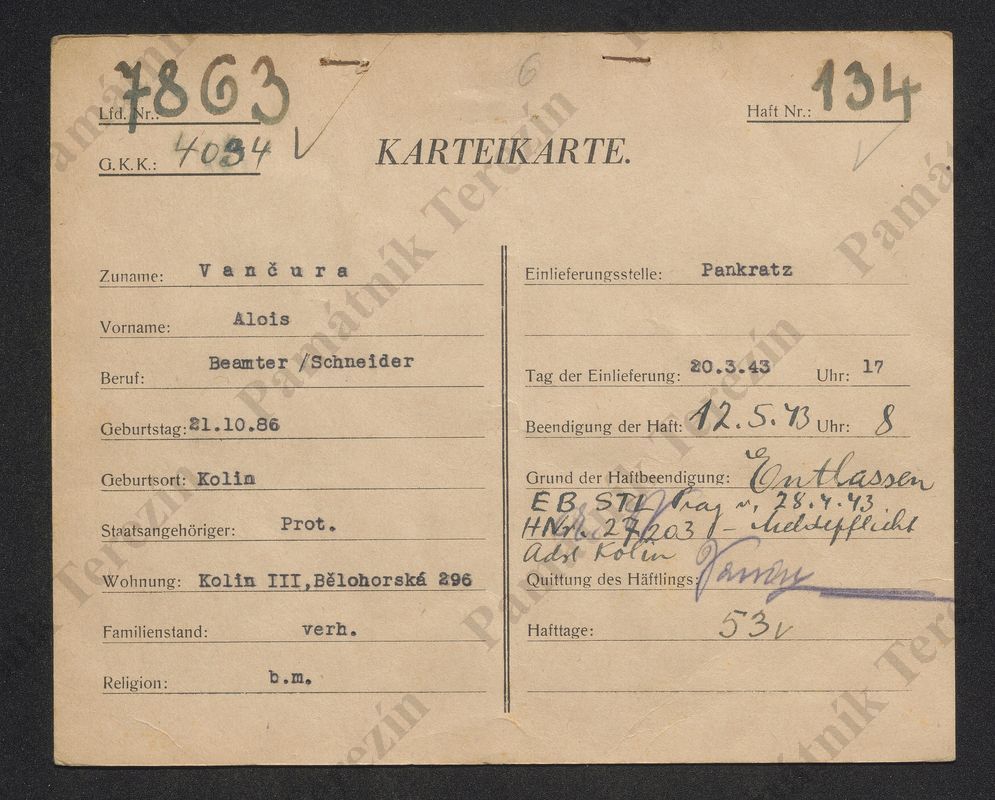 6
7863
Lfd. Nr.:
Haft Nr.: 134
G.K.K.: 4094
KARTEIKARTE.
Zuname: Vančura
Vorname: Alois
Beruf: Beamter /Schneider
Geburtstag: 21.10.86
Geburtsort: Kolin
Staatsangehöriger: Prot.
Wohnung: Kolin III,Bělohorská 296
Familienstand: verh.
Religion: b.m.
Einlieferungsstelle: Pankratz
Tag der Einlieferung: 20.3.43 Uhr: 17
Beendigung der Haft: 12.5.43 Uhr: 8
Grund der Haftbeendigung: Entlassen
EB. STL Prag v. 28.4.43.
HNr. 27203 - Meldepflicht
Adr. Kolin
Quittung des Häftlings:
Hafttage: 53
Památník Terezín